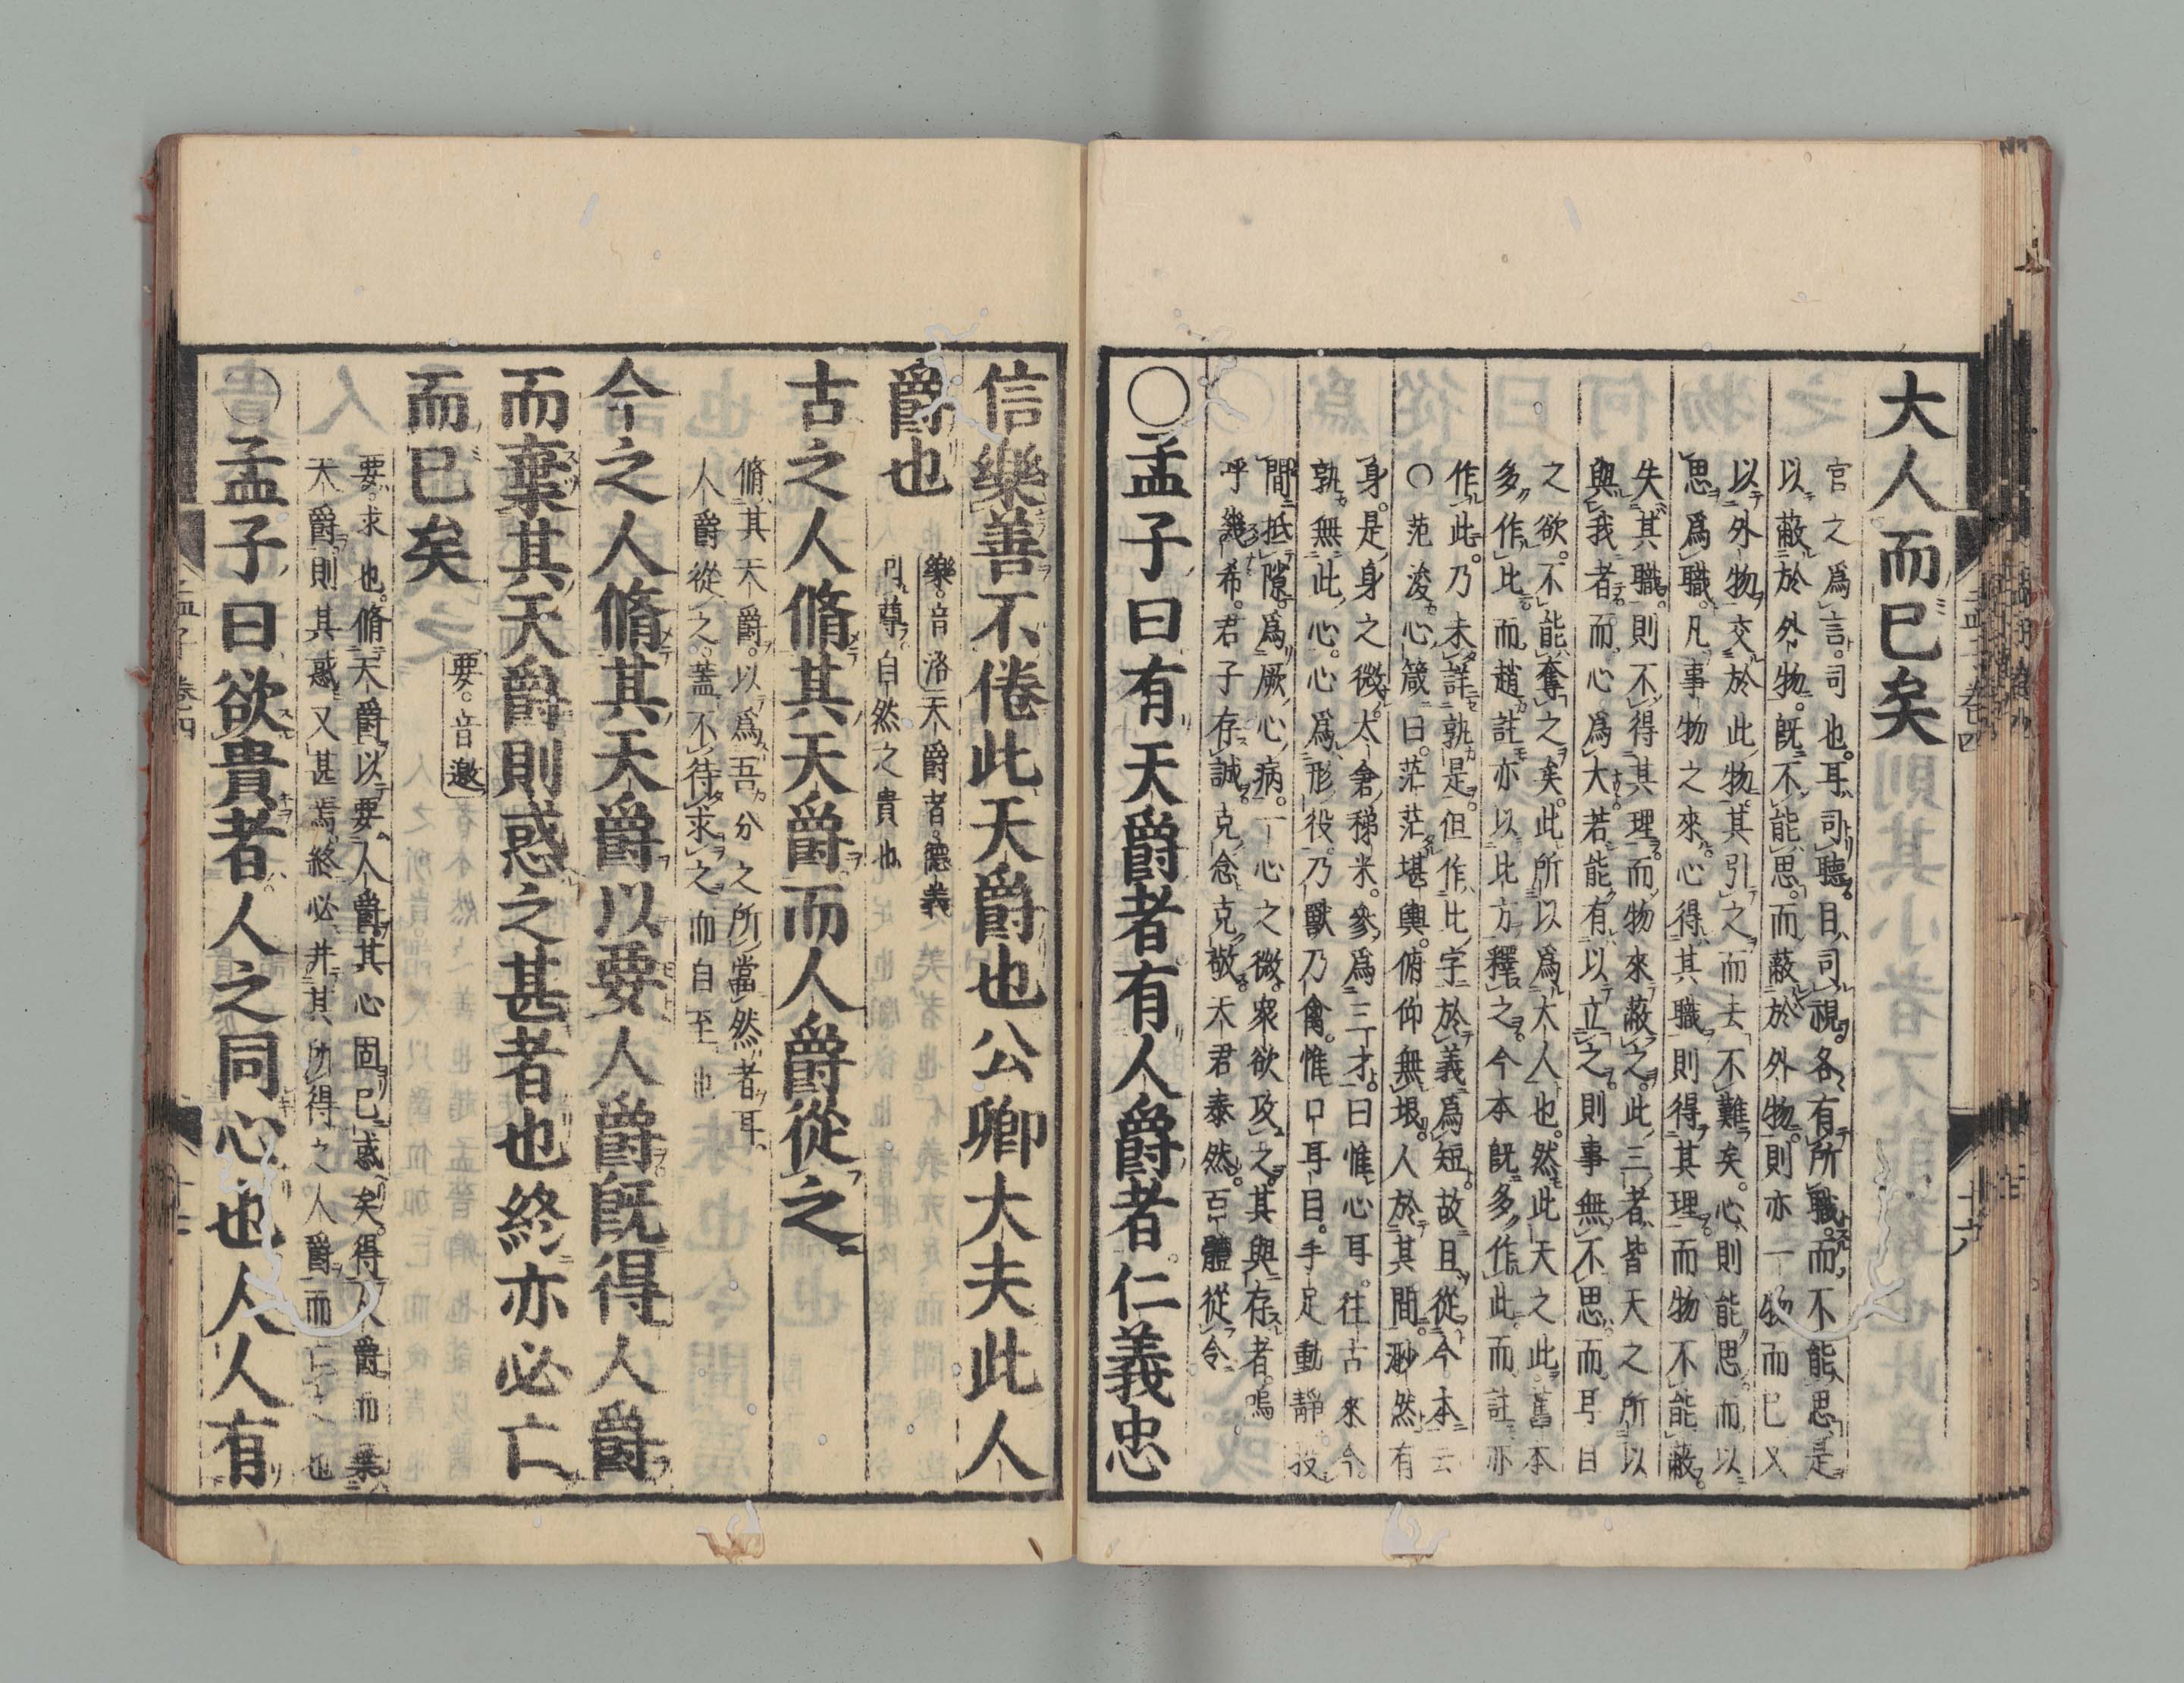 大人而已矣
官之爲言司也。耳司聽。目司視。各有所職。而不能思。是
以蔽於外物。旣不能思。而蔽於外物。則亦一物而已又
以外物交於此物。其引之而去不難矣。心則能思。而以
思爲職。凡事物之來。心得其職。則得其理。而物不能蔽。
失其職。則不得其理。而物來蔽之。此三者皆天之所以
與我者。而心爲大。若能有以立之。則事無不思。而耳目
之欲。不能奪之矣。此所以爲大人也。然此天之此。舊本
多作比。而趙註亦以比方釋之。今本旣多作此。而註亦
作此。乃未詳孰是。但作比字於義爲短。故且從今本云
〇范浚心箴曰。茫茫堪輿。俯仰無垠。人於其間。渺然有
身。是身之微。太倉稊米。參爲三才。曰惟心耳。往古來今。
孰無此心。心爲形役。乃獸乃禽。惟口耳目。手足動靜。投
間抵隙。爲厥心病。一心之微。衆欲攻之。其與存者。嗚
呼幾希。君子存誠。克念克敬。天君泰然。百體從令
〇孟子曰有天爵者有人爵者。仁義忠
信樂善不倦此天爵也公卿大夫此人
爵也
樂。音洛天爵者。德義
可尊。自然之貴也
古之人脩其天爵而人爵從之
脩其天爵。以爲吾分之所當然者耳。
人爵從之。蓋不待求之而自至也
今之人脩其天爵以要人爵旣得人爵
而棄其天爵則惑之甚者也終亦必亡
而已矣
要。音邀
要。求也。脩天爵以要人爵其心固已惑矣。得人爵而棄
天爵則其惑又甚焉。終必并其所得之人爵而亡之也
〇孟子曰欲貴者人之同心也人人有
孟子卷四
十六